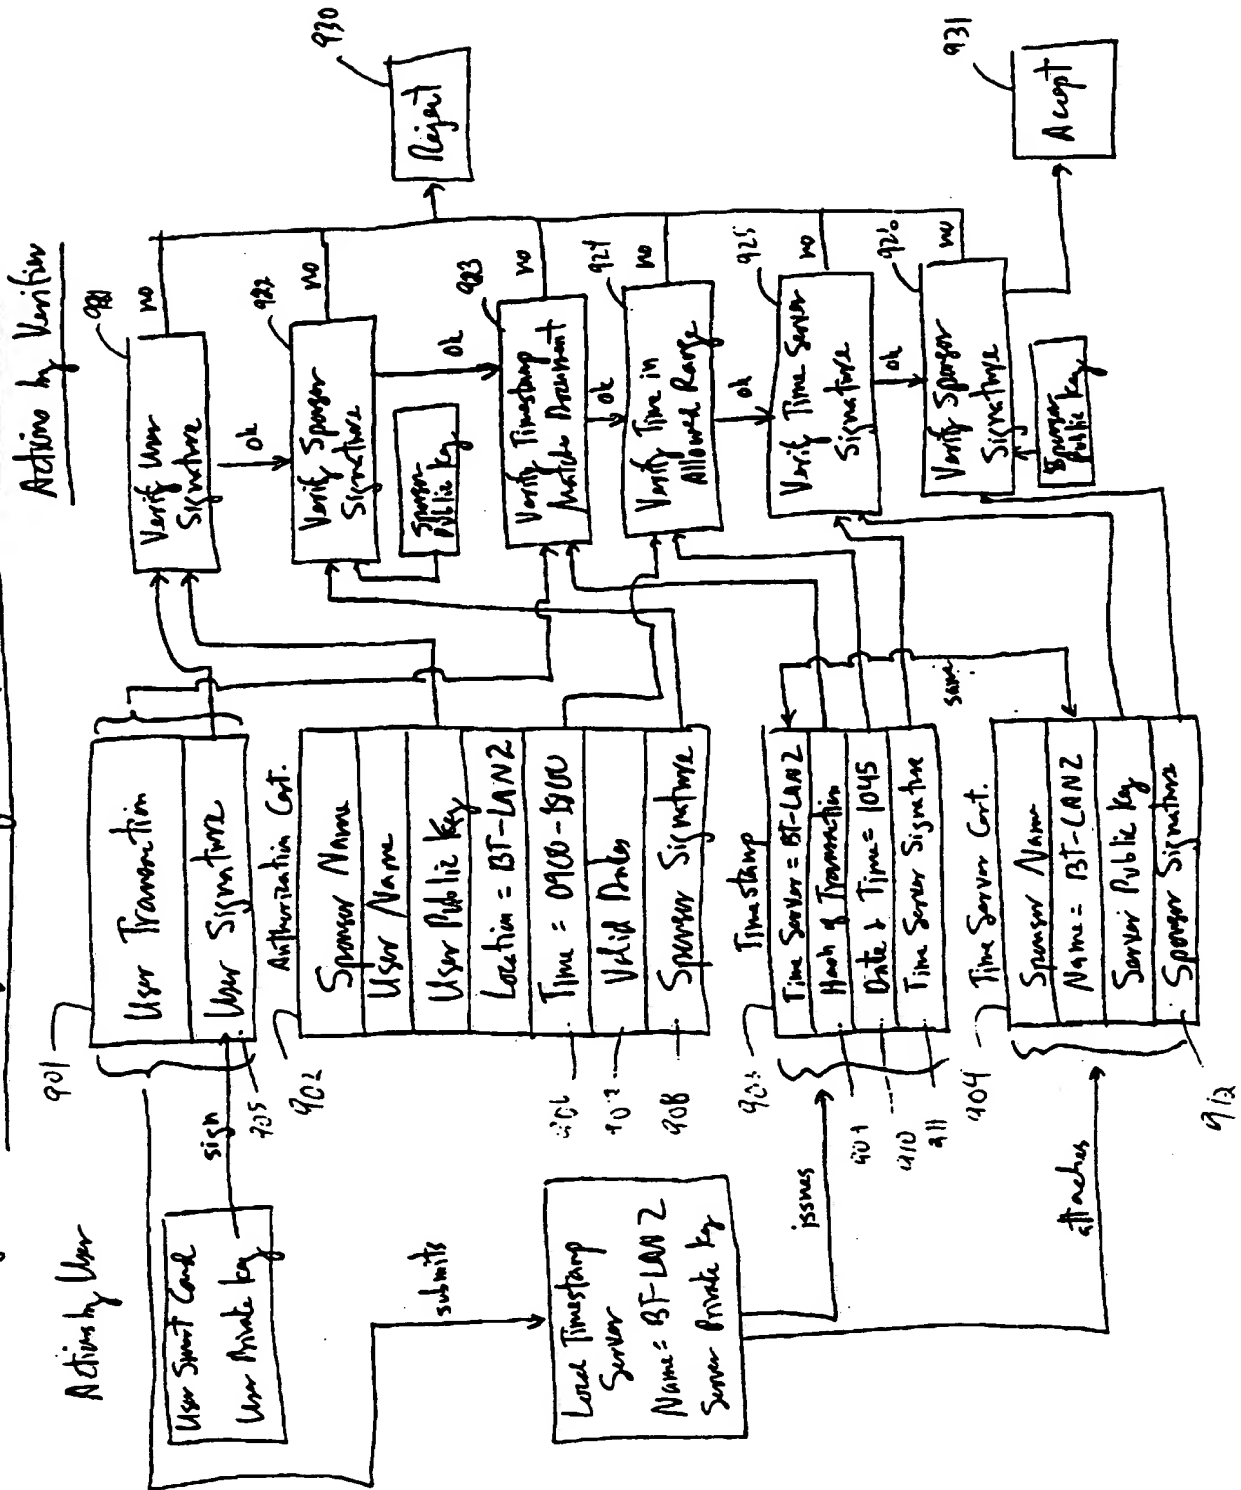 Actions by User
Actions by Verifier
User Smart Card
User Private Key
sign
submits
Local Timestamp
Server
Name = BT-LAN2
Server Private Key
issues
attaches
901
User Transaction
User Signature
902
Authorization Cert.
Sponsor Name
User Name
User Public Key
Location = BT-LAN2
Time = 0900-1800
Valid Dates
Sponsor Signature
908
Timestamp
Time Server = BT-LAN2
Hash of Transaction
Date & Time = 1045
Time Server Signature
910
911
904
Time Server Cert.
Sponsor Name
Name = BT-LAN2
Server Public Key
Sponsor Signature
912
same
Verify User
Signature
no
ok
922
Verify Sponsor
Signature
no
ok
Sponsor
Public Key
923
Verify Timestamp
Matches Document
no
ok
924
Verify Time in
Allowed Range
no
ok
925
Verify Time Server
Signature
no
ok
926
Verify Sponsor
Signature
no
Sponsor
Public Key
930
Reject
931
Accept